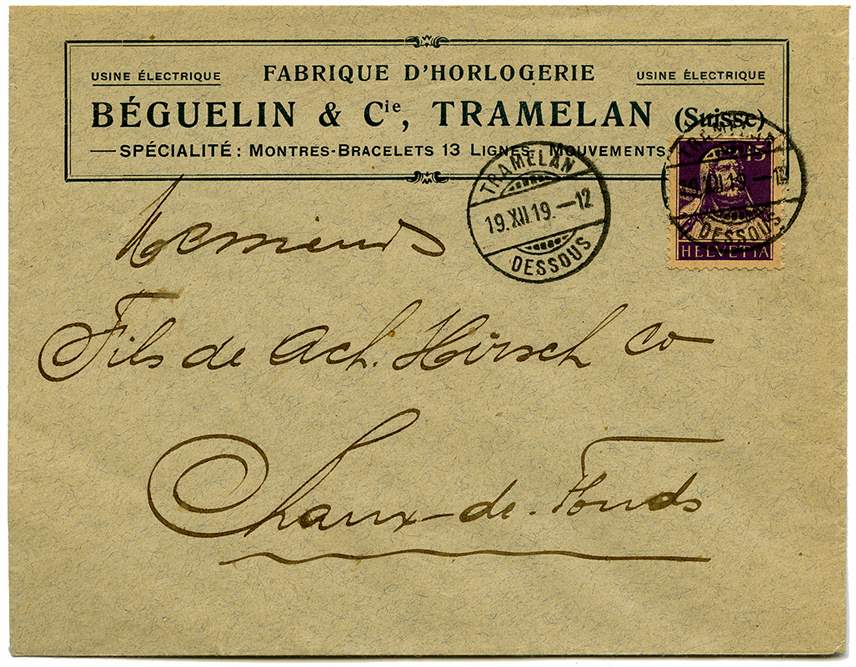 USINE ÉLECTRIQUE FABRIQUE D'HORLOGERIE USINE ÉLECTRIQUE
BÉGUELIN & Cie, TRAMELAN (Suisse)
— SPÉCIALITÉ : MONTRES-BRACELETS 13 LIGNES, MOUVEMENTS
TRAMELAN
19.XII.19.—12
DESSOUS
15
XII.19.—12
DESSOUS
HELVETIA
Messieurs
Fils de Ach. Hirsch Co
Chaux-de-Fonds